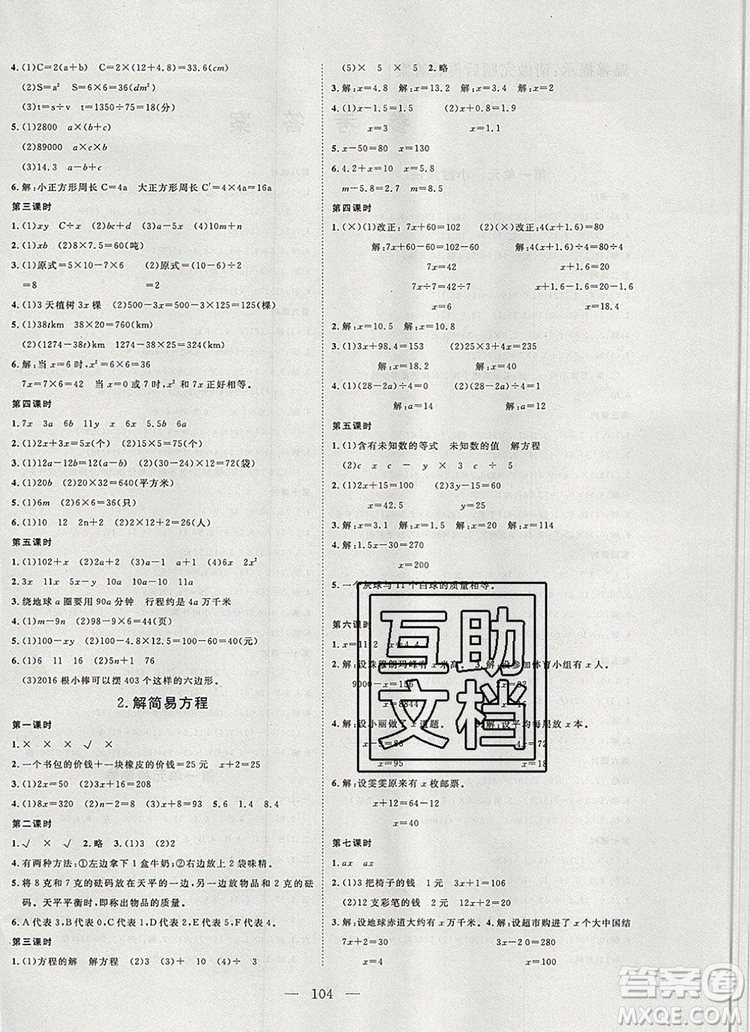 4.(1)C=2(a+b)　C=2×(12+4.8)=33.6(dm)
(2)S=a²　S=6×6=36(dm²)
(3)t=s÷v　t=1170÷65=18(分)
5.(1)2800　a×(b+c)
(2)89000　a×b×c
(3)14.3　a-(b+c)
6.解:小正方形周长 C=4a　大正方形周长 C'=4×4a=16a
第三课时
1.(1)xy　C÷x　(2)bc+bd　a-5b　(3)10m+n
2.(1)xb　(2)8×7.5=60(吨)
3.(1)原式=5×10-7×6　(2)原式=(10-6)÷2
=8　=2
4.(1)3 天植树 3x 棵　(2)500-3x=500-3×125=125(棵)
5.(1)38rkm　38×20=760(km)
(2)(1274-38r)km　1274-38×15=704(km)
6.解:当 x=6 时,x²=6×6=36
7x=7×6=42　当 x=0 或 7 时,x²和 7x 正好相等。
第四课时
1.7x　3a　18a　6x　15b　6x　5.5b　y
2.(1)2x+3x=5x(个)　(2)15×5=75(个)
3.(1)12a-9a=3a　(2)(30-24)÷0.5=12(袋)
4.(1)20r　(2)20×32=640(平方米)
5.(1)6m　(2)6×336=2016(只)
6.(1)10　12　2n+2　(2)22 人
第五课时
1.(1)102+x　(2)20x　(3)y÷5　(4)2x　2x²
2.10x　11a　36x　15x　3x　17m
3.绕地球 a 圈要用 90a 分钟　行程约是 4a 万千米
4.(1)m-9n　(2)18-9×0.5=13.5(升)
5.(1)100-xy　(2)100-4.8×12.5=40(元)
6.(1)6　11　16　21　(2)1+5n
(3)2016 根小棒可以摆 403 个这样的六边形。
2.解简易方程
第一课时
1.×　×　×　√　×
2.一个书包的价钱+一块橡皮的价钱=25 元
3.(1)2x=50　(2)x+5y=20
4.(1)8x=320　(2)x+8.5=92　5.6　1.4　8　9
第二课时
1.√　×　√　√　2.略　3.(1)3　(2)2
4.有两种方法:①左边拿下 1 盒牛奶;②右边放上 2 袋味精。
5.将 8 克和 7 克的砝码放在天平的一边,另一边放物品和 2 克的砝
码。天平保持平衡时,即称出物品的质量。
6.A 代表 3　B 代表 9　C 代表 1　D 代表 7　E 代表 5　F 代表 4
第三课时
1.(1)方程的解　解方程　(2)x=21　x=49
(5)×　5　×　5　×　2.略
3.解:x=4.8　解:x=10.8　解:x=8.4
4.(1)x+1.8=4.8　(2)x-0.7=0.8
x=3　x=1.5
5.x-50=80　x=130
6.m-5.8=2.8　m=8.6
第四课时
1.(×)改正:7x+60=102　(2)(×)改正:4(x+1.6)=20
解:7x+60-60=102-60　解:4(x+1.6)÷4=20÷4
7x=42　x+1.6-1.6=5-1.6
x=6　x=3.4
2.解:x=10.5　解:x=10.8　解:x=8
3.(1)3x+98.4=153　(2)25×3+4x=235
解:x=18.2　解:x=40
4.(1)(28-2a)÷4=2　(2)(28-2a)÷4=0
解:a=10　解:a=14
第五课时
1.(1)含有未知数的等式　未知数的值　解方程
(2)c　x　c　x　-　c　c
2.(1)2x-35=50　(2)3y-15=10
3.解:x=3.1　解:x=1.5　解:x=38
4.解:1.5x-30=270
x=200
5.一个灰球与 11 个白球的质量相等。
第六课时
9000-x=156
x-5=80
x=95　x=18
6.解:设雯雯原来有 x 枚邮票。
x+12=64-12
x=40
第七课时
1.ax　ax
2.(1)3 把椅子的钱　1 元　3x+1=60
(2)12 支彩笔的钱　2 元　12x+2=50
3.解:设地球赤道大约有 x 万千米　4.解:设超市购进了 x 大中国结
7x+2=30　9x-30=510
x=4　x=60
104
互助文档
答案圈
MXQE.COM